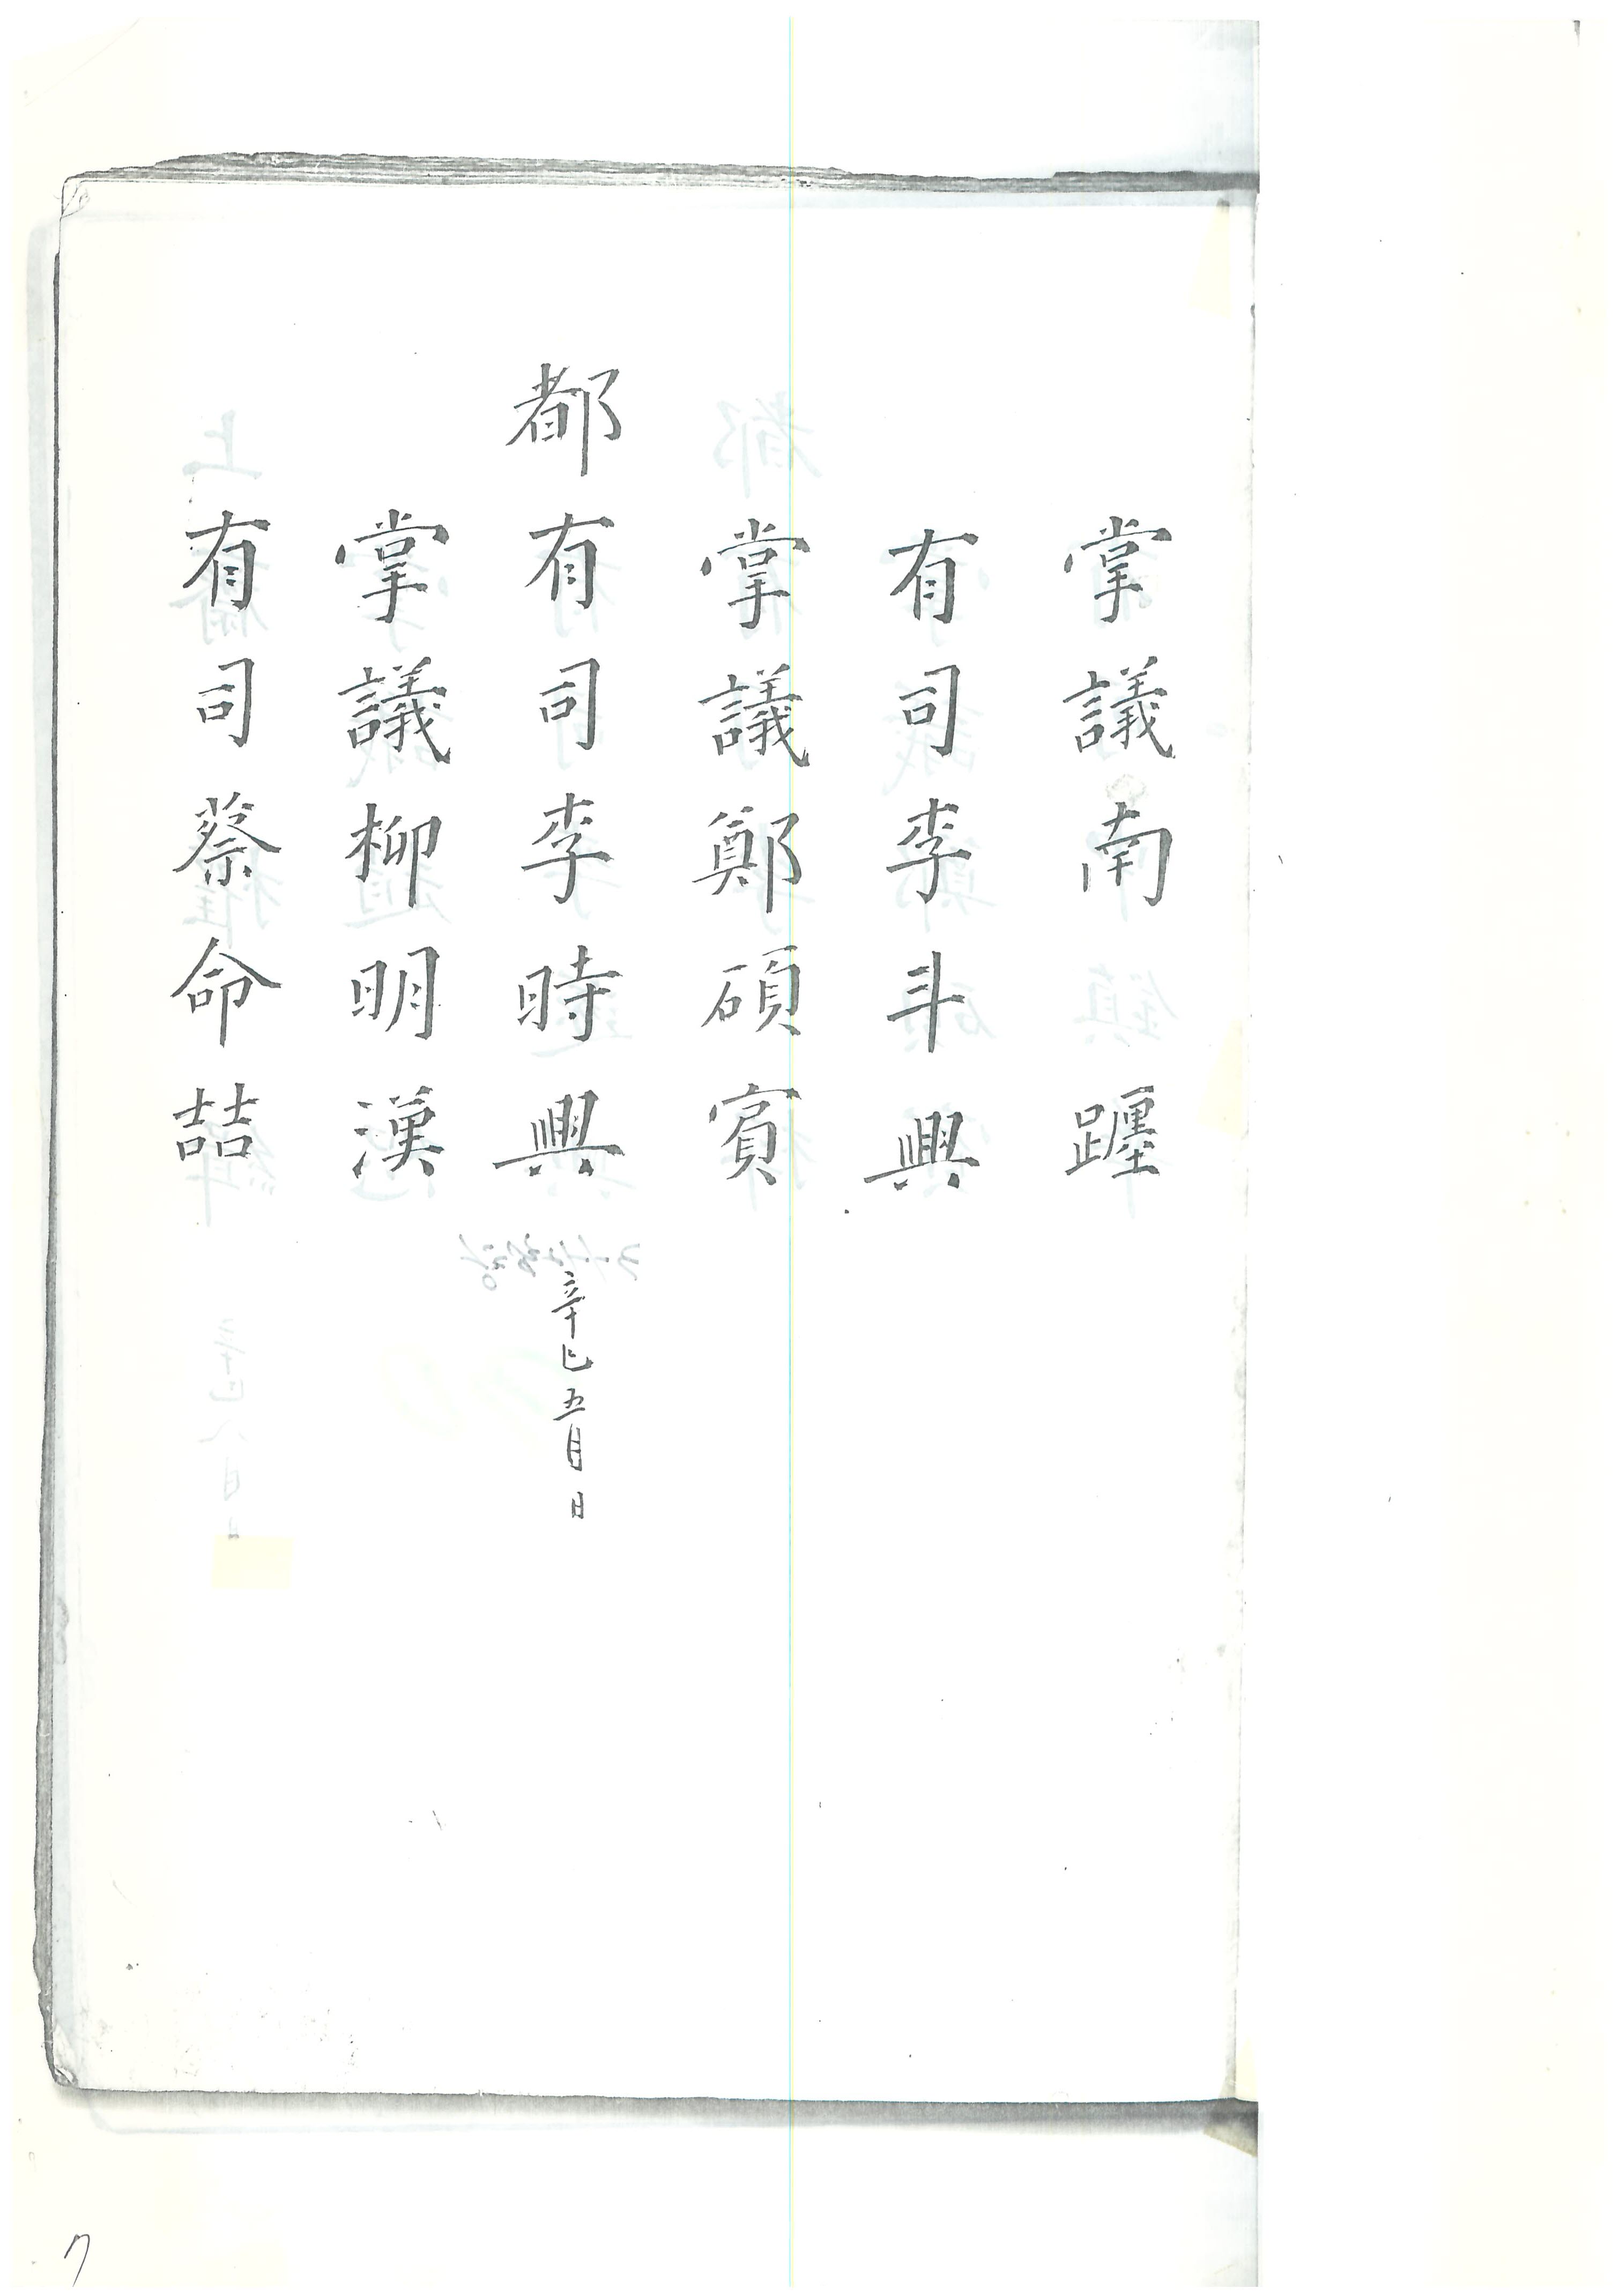 掌議南躔
有司李斗興
掌議鄭碩賓
都有司李時興
辛巳五月 日
掌議柳明漢
有司蔡命喆
7